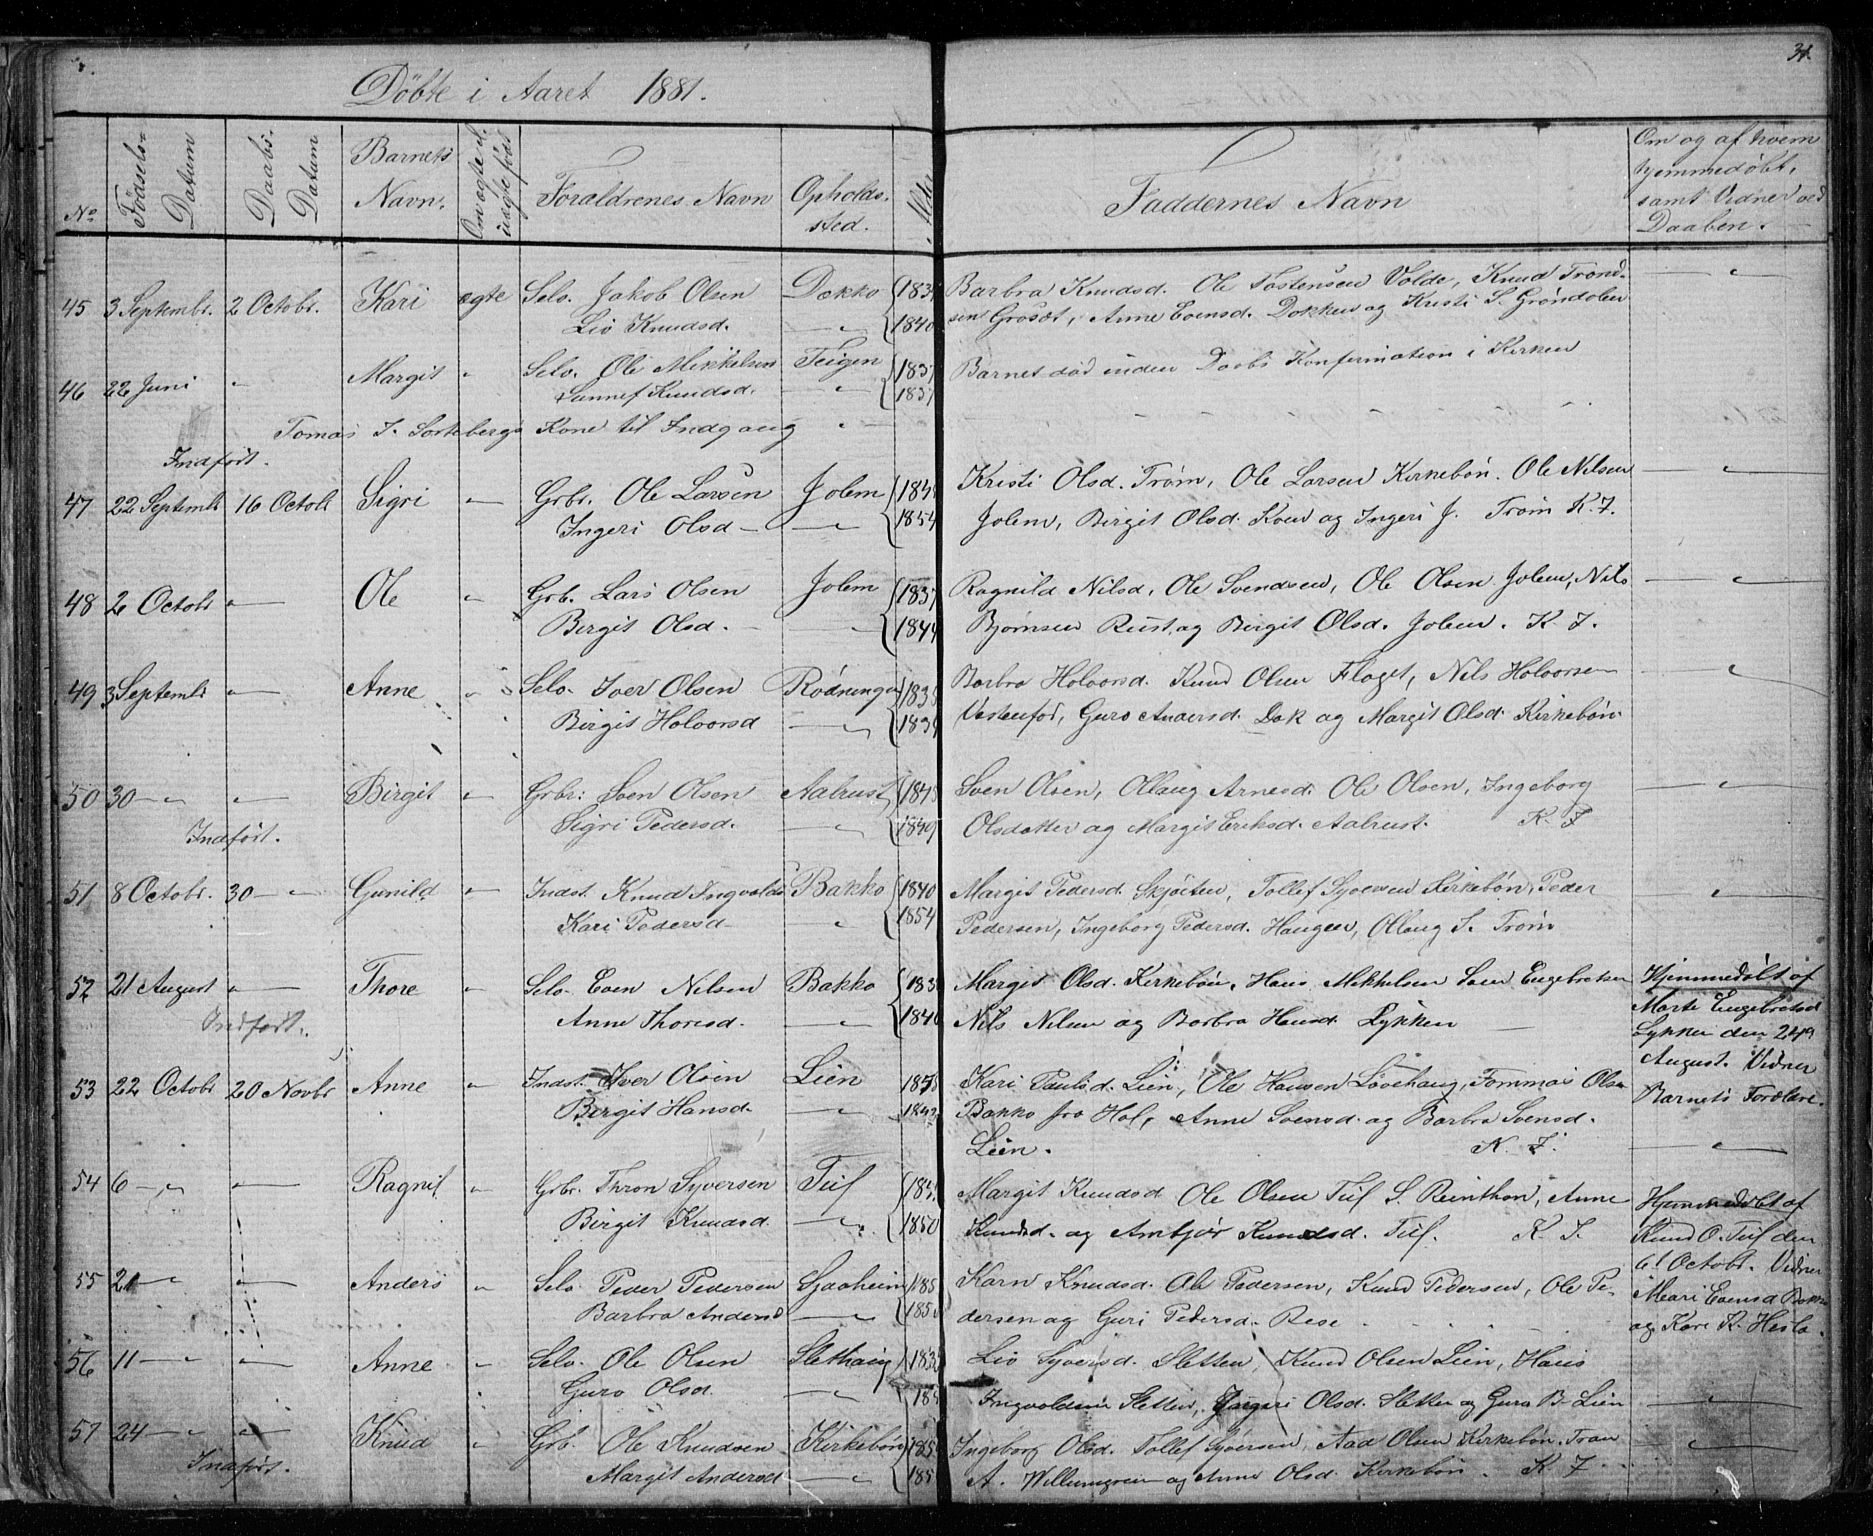 34.
Döbte i Aaret 1881.
No
Födsels-Datum
Daabs-Datum
Barnets Navn.
Om ægte el. uægte fød
Forældrenes Navn
Opholds-sted.
Alder
Faddernes Navn
Om og af hvem hjemmedøbt, samt Vidner ved Daaben.
45 3 Septembr. 2 Octobr. Kari ægte Selv. Jakob Olsen Dokko Barbra Knudsd. Ole Tostensen Volde, Knud Trond-
Liv Knudsd. 1840 sen Grøsæt, Anne Evensd. Dokken og Kristi S. Grøndolen
46 22 Juni " Margit " Selv. Ole Mikkelsen Teigen 1837 Barnet død inden Daabs Konfirmation i Kirken
Gunnef Knudsd. 1837
Tomas T. Sorteberg Kone til Indgang
Indført.
47 22 Septembr 16 Octobr Sigri " Grbr. Ole Larsen Jolem Kristi Olsd. Trøm, Ole Larsen Kirkebön. Ole Nilsen
Ingeri Olsd 1854 Jolem, Birgit Olsd. og Ingeri J. Trøm K. J.
48 2 Octobr " Ole " Grb. Lars Olsen Jolem 1837 Ragnild Nilsd, Ole Svendsen, Ole Olsen Jolem, Nils
Birgit Olsd. 1844 Bjørnsen Rust, og Birgit Olsd. Jolem. K. J.
49 3 Septembr " Anne " Selv. Iver Olsen Rødningen 1838 Barbra Holvorsd. Knud Olsen Flaget, Nils Holvorsen
Birgit Holvorsd 1839 Vestenfor, Guro Andersd. Dok og Margit Olsd. Kirkebön.
50 30 " " Birgit " Grbr: Sven Olsen Aalrust Sven Olsen, Ollaug Arnesd. Ole Olsen, Ingeborg
Sigri Pedersd. 1849 Olsdatter og Margit Eriksd. Aalrust. K. J
Indført.
51 8 Octobr. 30 " Gunild " Indst. Knud Ingvolds Bakko 1840 Margit Pedersd. Tollef Syversen Kirkebön, Peder
Kari Pedersd " 1854 Pedersen, Ingeborg Pedersd. Haugen, Ollaug S. Trøm
52 21 August " Thore " Selv. Even Nilsen Bakko Margit Olsd. Kirkebön, Hans Mikkelsen Engebretsen Hjemmedøbt af
Anne Thoresd. 1840 Nils Nilsen og Barbra Hansd. Lykken Marte Engebretsd
Indført. Lykken den 24de
August. Vidner
53 22 Octobr 20 Novbr Anne " Indst. Iver Olsen Lien Kari Paulsd. Lien, Ole Hansen Løvehaug, Tommas Olsen Barnets Forældre.
Birgit Hansd. Bakko fra Hol, Anne Svensd. og Barbra Svensd.
Lien. K. J.
54 6 " " Ragnil " Grbr. Thron Syversen Tuf Margit Knudsd Ole Olsen Tuf S. Reinthon, Anne Hjemmedøbt af
Birgit Knudsd. 1850 Knudsd. og Ambjør Knudsd. Tuf. K. J. Knud O. Tuf den
6t Octobr. Vidner
55 21 " " Anders " Selv. Peder Pedersen Sjaaheim Karn Knudsd. Ole Pedersen, Knud Pedersen, Ole Pe- Evensd Bakko
Barbra Andersd dersen og Guri Pedersd. Rese og Kari K. Hesla.
56 11 " " Anne " Selv. Ole Olsen Slethaug Liv Syversd. Sletten, Knud Olsen Lien, Hans
Guro Olsd. Ingvoldsen Sletten, Ingeri Olsd. Sletten og Guro B. Lien
57 24 " " Knud " Grb. Ole Knudsen Kirkebön Ingeborg Olsd. Tollef Syversen, Aad Olsen Kirkebön.
Margit Andersd A. Willumgren og Anne Olsd. Kirkebön. K J
Indført.